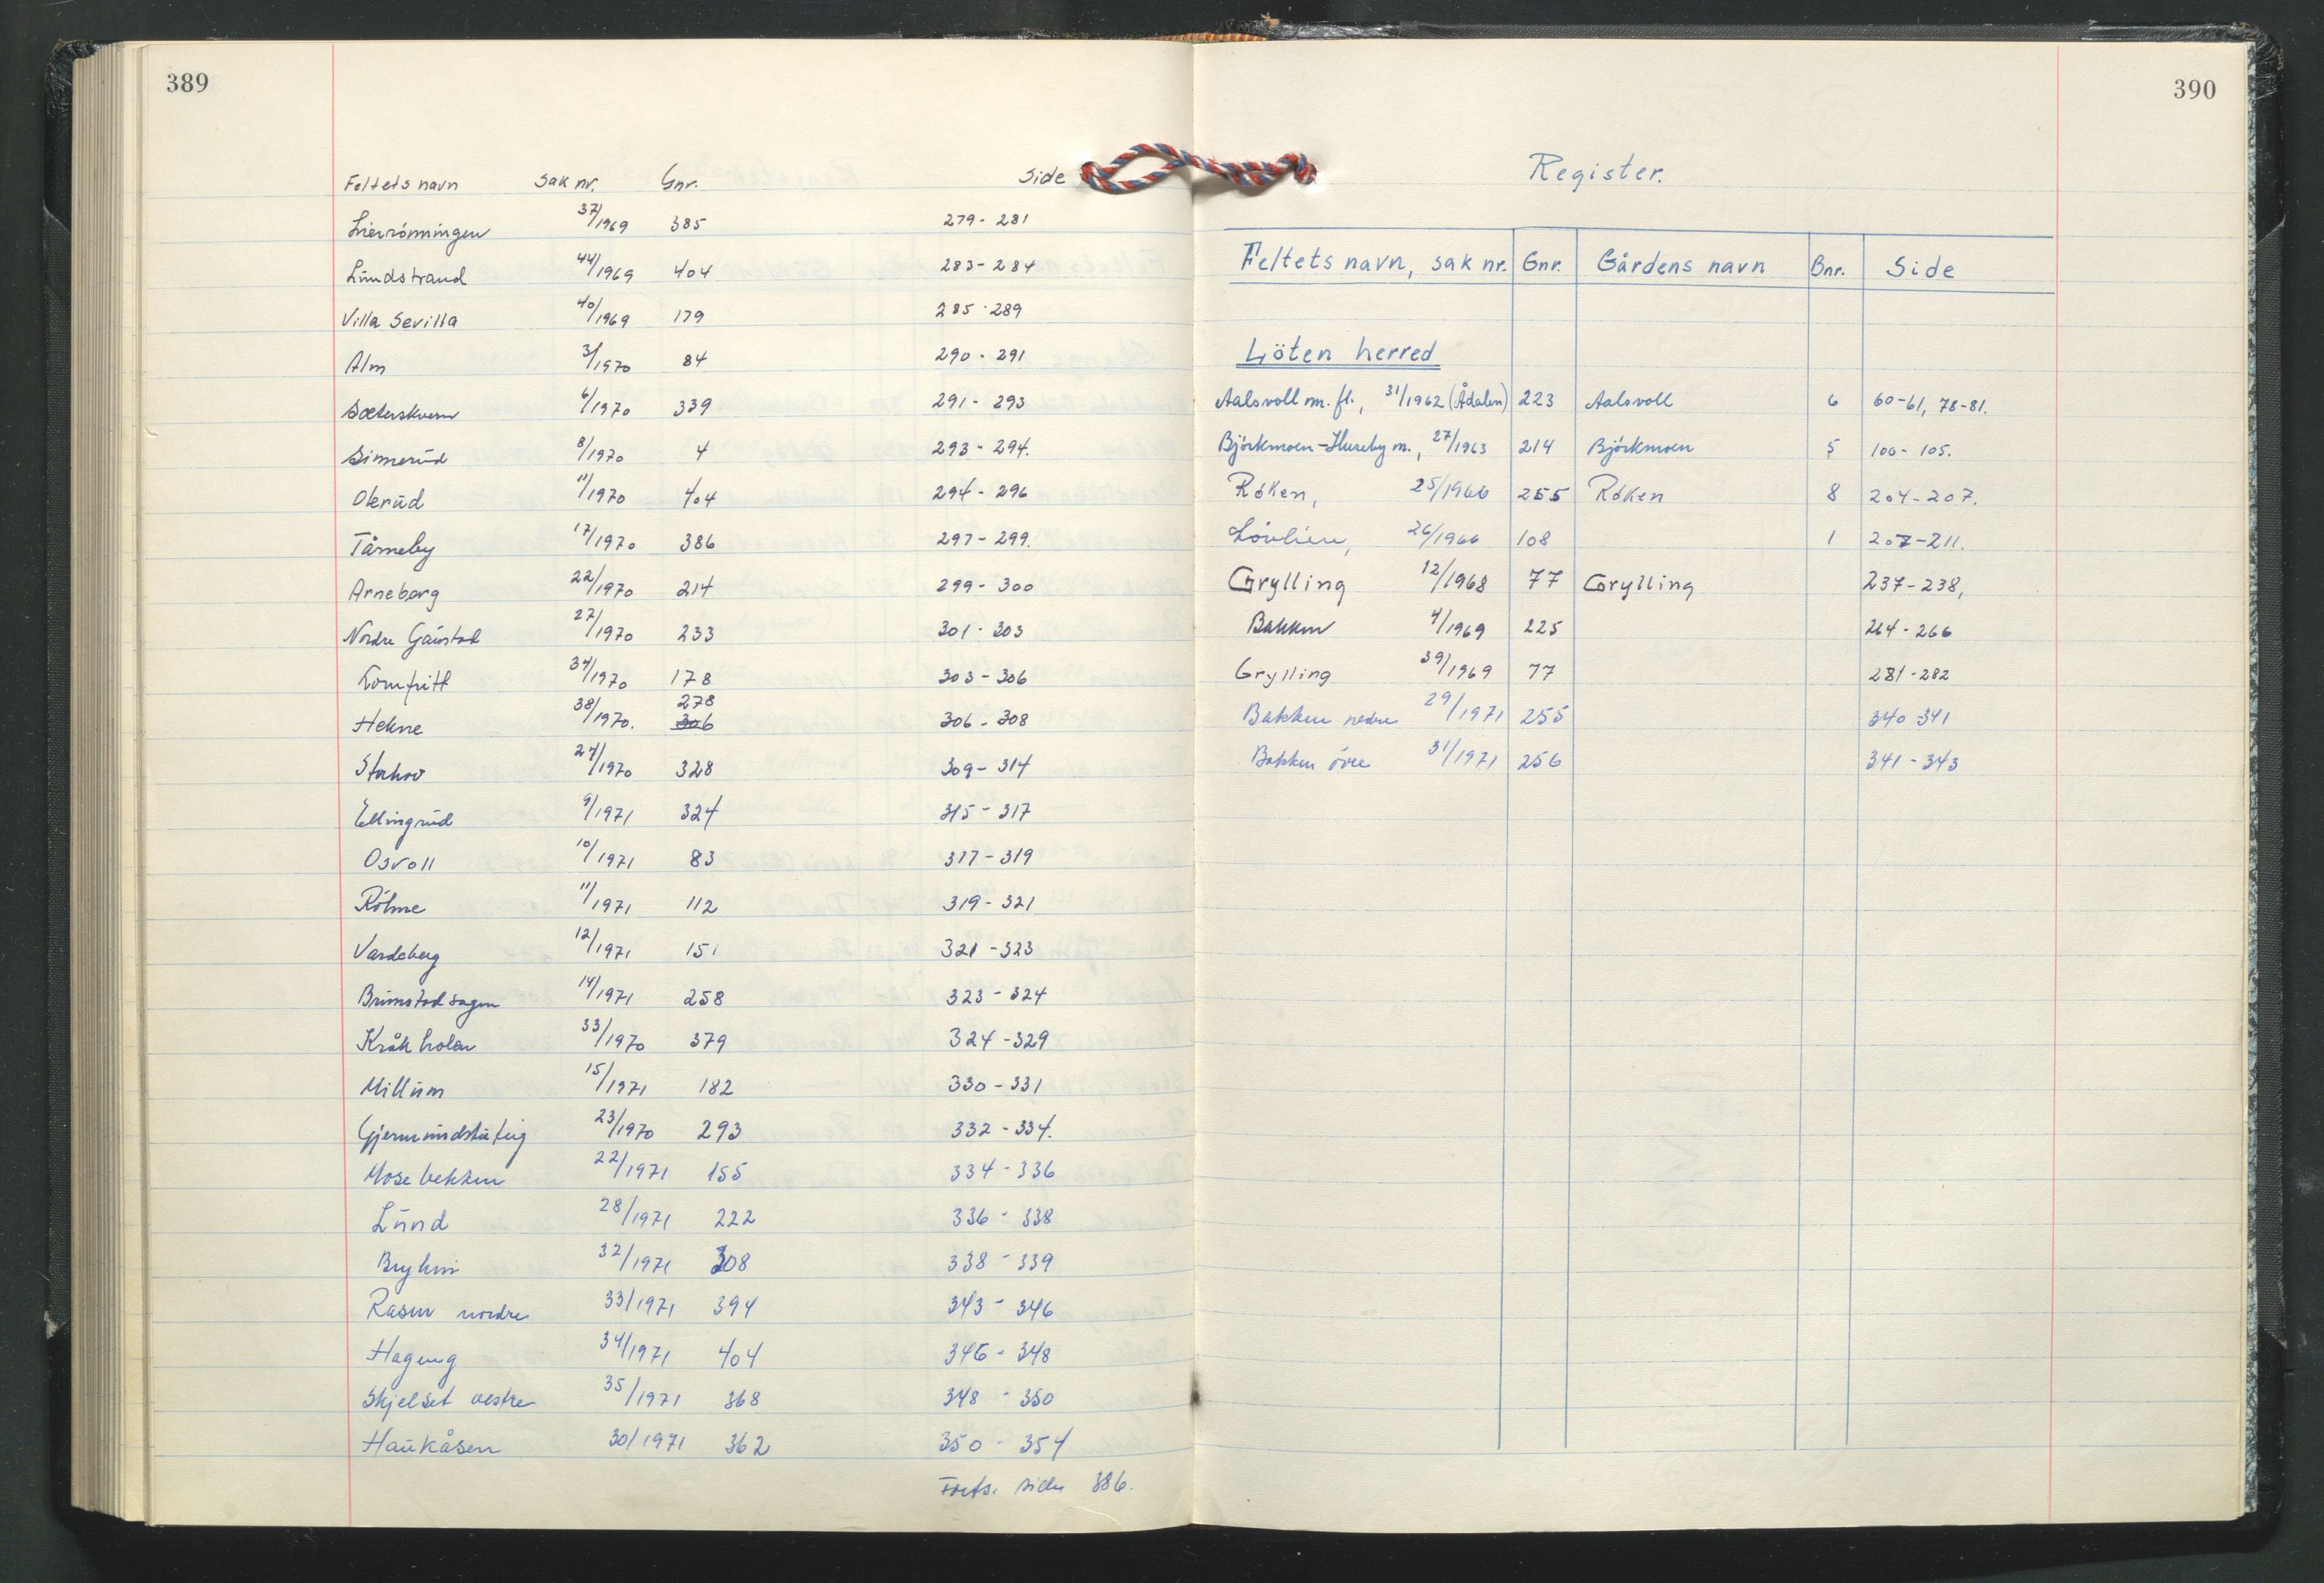 389
Feltets navn Sak nr. Gnr. Side
Lierrönningen 37/1969 385 279 - 281
Lundstrand 44/1969 404 283 - 284
Villa Sevilla 40/1969 179 285 - 289
Alm 3/1970 84 290 - 291
Sæterskvern 6/1970 339 291 - 293
Simerud 8/1970 4 293 - 294.
Okerud 11/1970 404 294 - 296
Tårneby 17/1970 386 297 - 299.
Arneberg 22/1970 214 299 - 300
Nordre Gaustad 27/1970 233 301 - 303
34/1970 178 303 - 306
Hekne 38/1970. 278 306 306 - 308
Storhov 24/1970 328 309 - 314
Ellingrud 9/1971 324 315 - 317
Osvoll 10/1971 83 317 - 319
Röhne 11/1971 112 319 - 321
Vardeberg 12/1971 151 321 - 323
Brumstadsagen 14/1971 258 323 - 324
Kråkholen 33/1970 379 324 - 329
Millum 15/1971 182 330 - 331
23/1970 293 332 - 334.
Mosebekken 22/1971 155 334 - 336
Lund 28/1971 222 336 - 338
Bryhni 32/1971 308 338 - 339
Rasen nordre 33/1971 394 343 - 346
Hageng 34/1971 404 346 - 348
Skjelset vestre 35/1971 368 348 - 350
Haukåsen 30/1971 362 350 - 354
Forts. side 386.
390
Register.
Feltets navn, sak nr. Gnr. Gårdens navn Bnr. Side
Löten herred
Aalsvoll m. fl., 31/1962 (Ådalen) 223 Aalsvoll 6 60-61, 78-81.
Björkmoen-Huseby m., 27/1963 214 Björkmoen 5 100 - 105.
Röken, 25/1966 255 Röken 8 204 - 207.
Lövlien, 26/1966 108 1 207 - 211.
Grylling 12/1968 77 Grylling 237 - 238,
Bakken 4/1969 225 264 - 266
Grylling 39/1969 77 281 - 282
Bakken nedre 29/1971 255 340 - 341
Bakken övre 31/1971 256 341 - 343